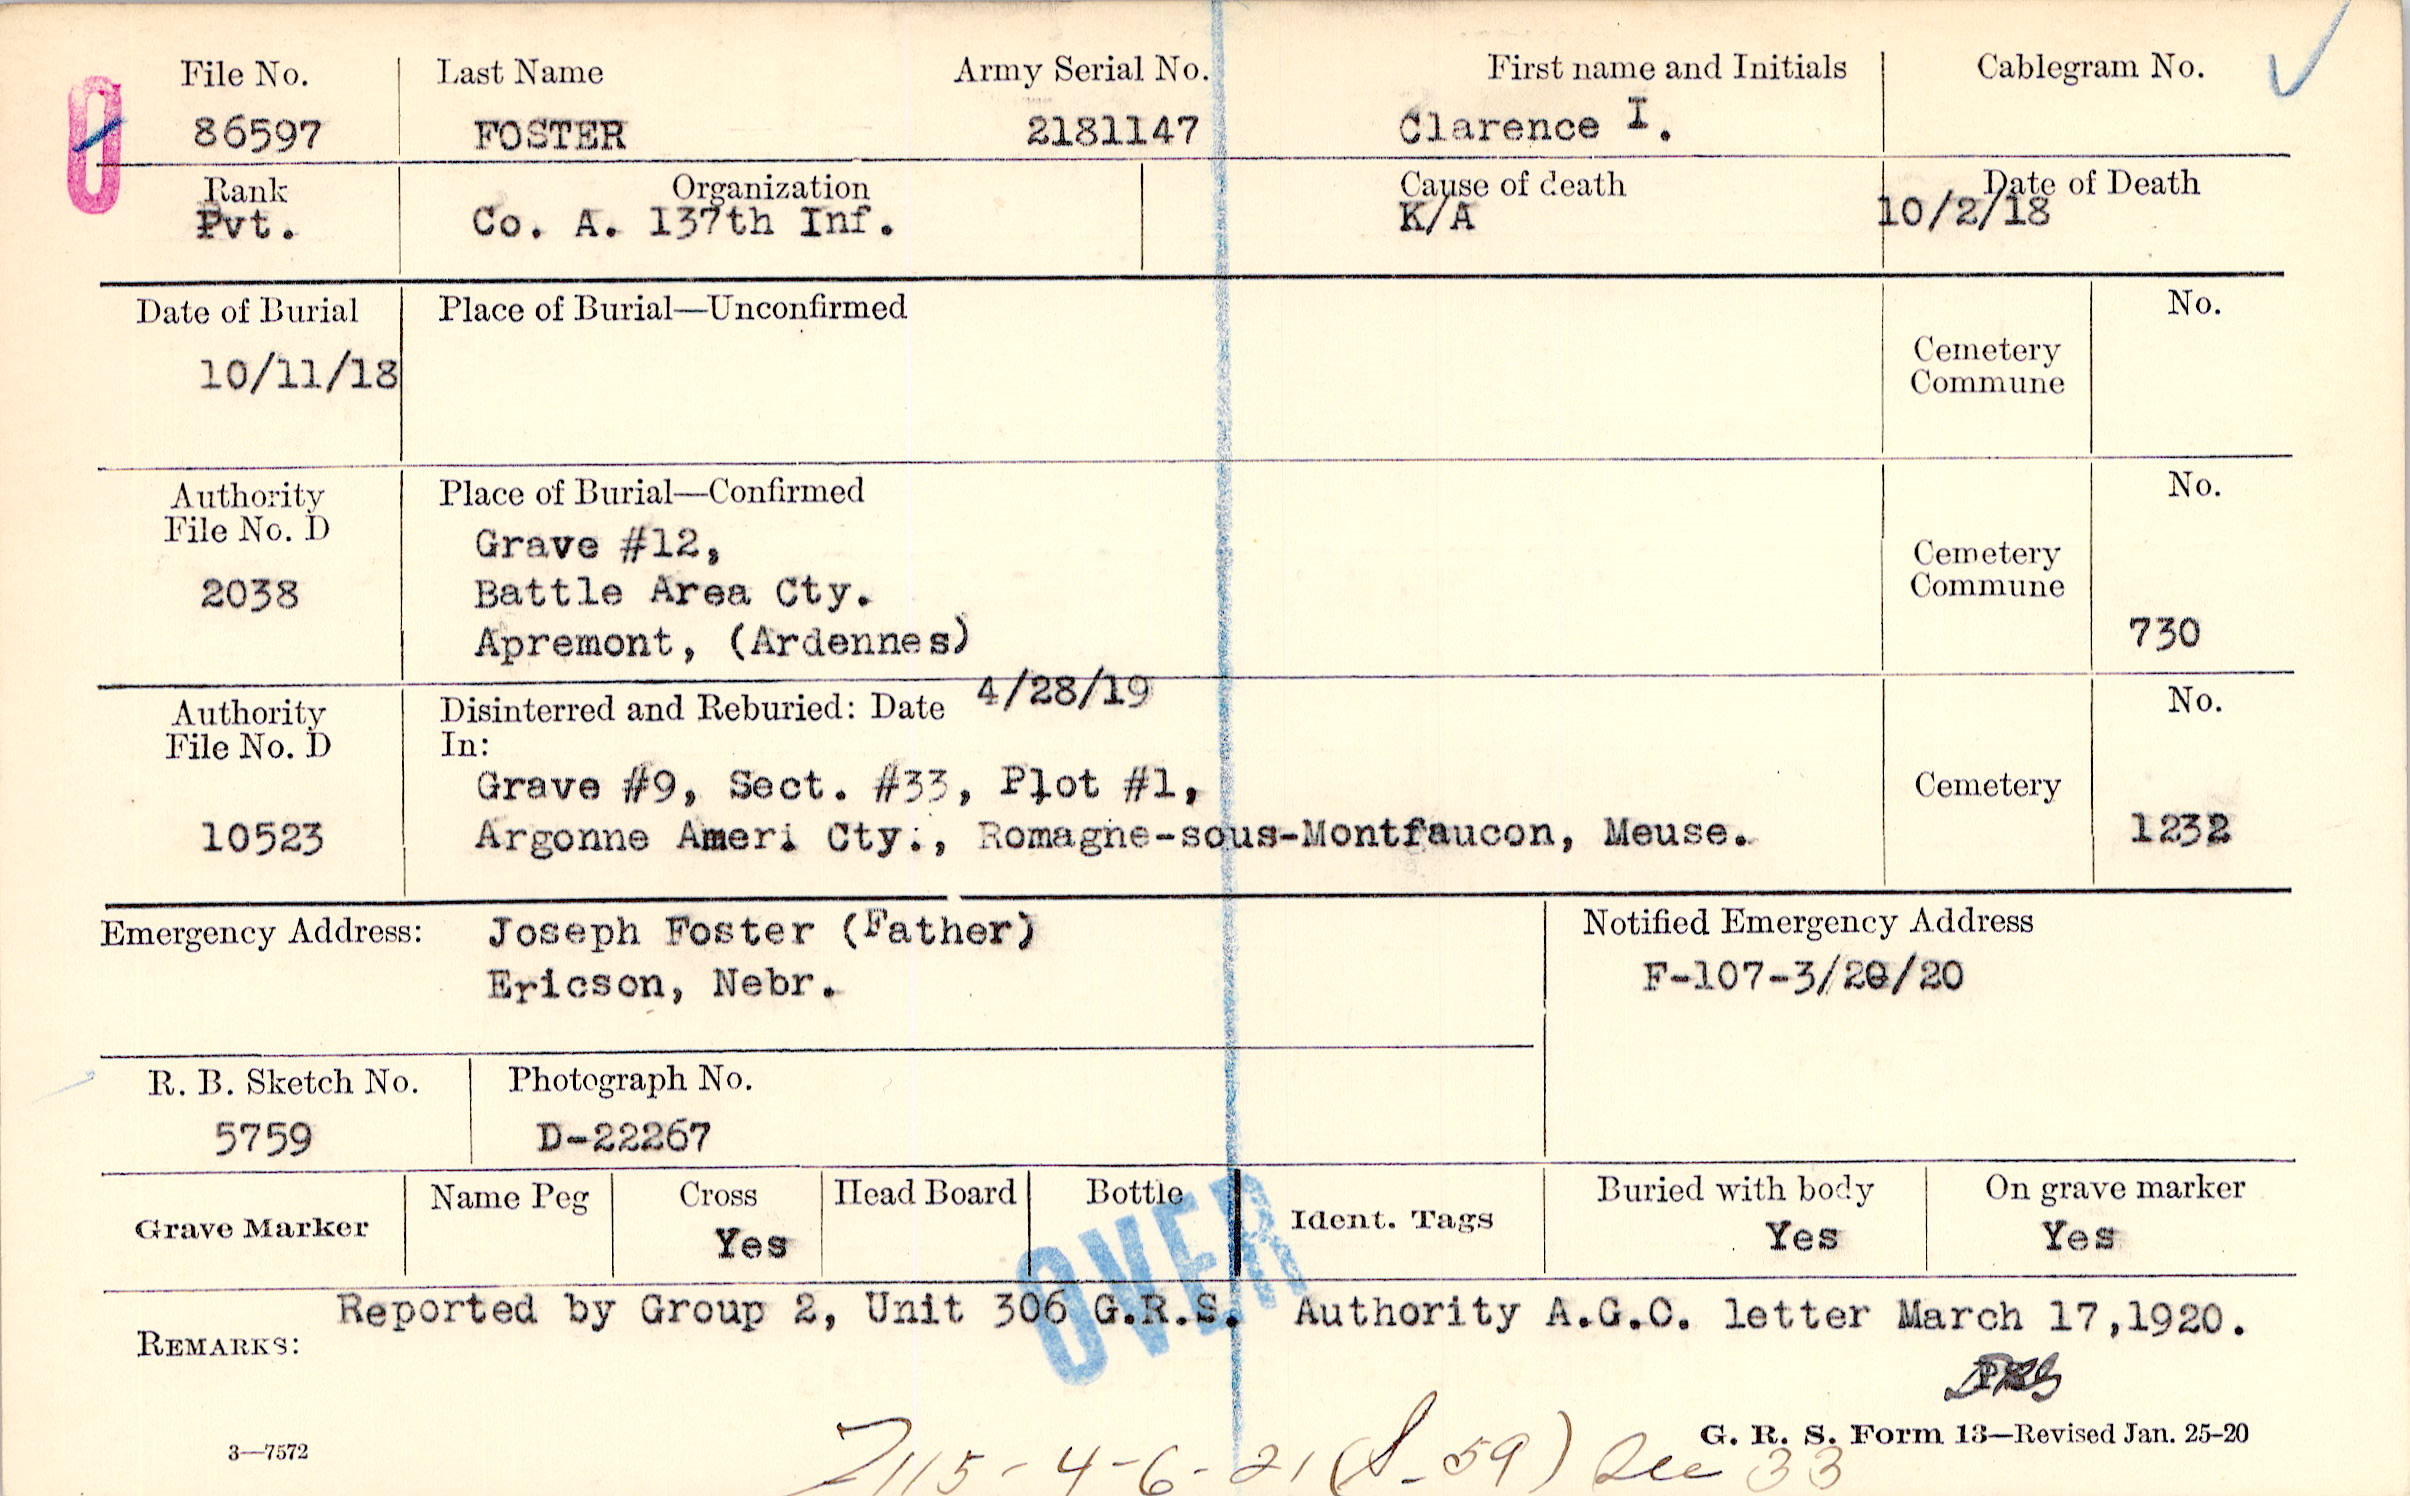 File No. Last Name Army Serial No. First name and Initials Cablegram No.
86597 FOSTER 2181147 Clarence I.
Rank Organization Cause of death Date of Death
Pvt. Co. A. 137th Inf. K/A 10/2/18
Date of Burial Place of Burial—Unconfirmed No.
10/11/18 Cemetery
Commune
Authority Place of Burial—Confirmed No.
File No. D Grave #12,
2038 Battle Area Cty. Cemetery
Commune
Apremont, (Ardennes) 730
Authority Disinterred and Reburied: Date 4/28/19 No.
File No. D In:
Grave #9, Sect. #33, Plot #1, Cemetery
10523 Argonne Ameri Cty., Romagne-sous-Montfaucon, Meuse. 1232
Emergency Address: Joseph Foster (Father) Notified Emergency Address
Ericson, Nebr. F-107-3/20/20
R. B. Sketch No. Photograph No.
5759 D-22267
Grave Marker Name Peg Cross Head Board Bottle Ident. Tags Buried with body On grave marker
Yes Yes Yes
OVER
Reported by Group 2, Unit 306 G.R.S. Authority A.G.O. letter March 17,1920.
REMARKS:
G. R. S. Form 13—Revised Jan. 25-20
3—7572
115-4-6-21 (S-59) Sec 33